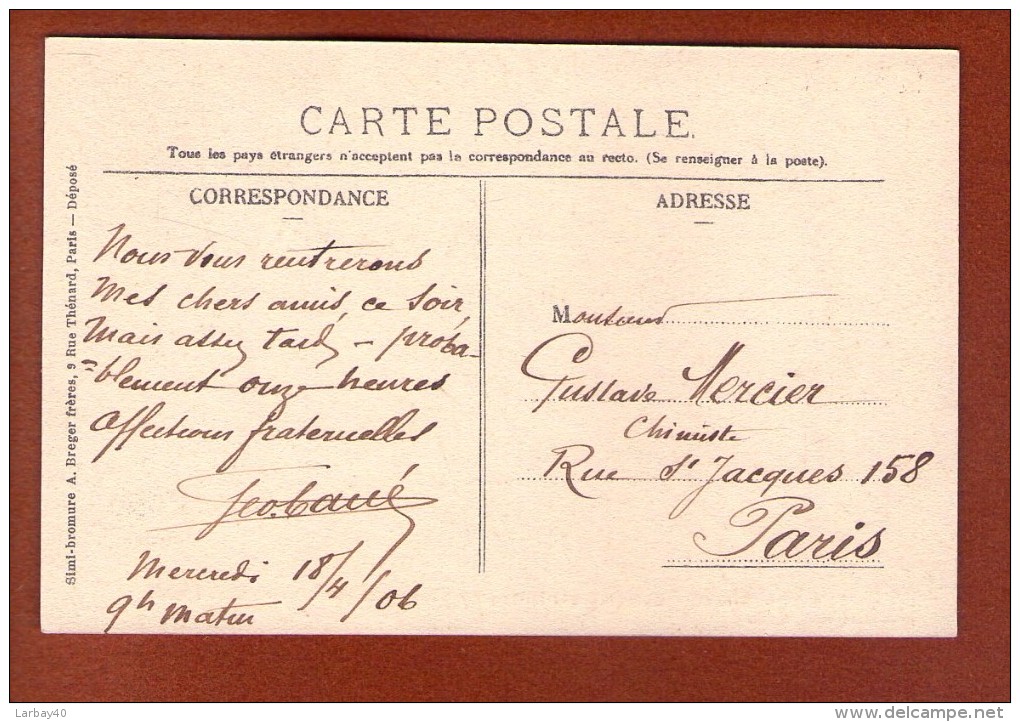 CARTE POSTALE.
Tous les pays étrangers n'acceptent pas la correspondance au recto. (Se renseigner à la poste).
CORRESPONDANCE
Nous vous rentrerons
Mes chers amis, ce soir,
Mais assez tard, – proba-
=blement onze heures
Affections fraternelles
Mercredi 18/4/06
9h matin
ADRESSE
Monsieur
Gustave Mercier
Chimiste
Rue St Jacques 158
Paris
Simi-bromure A. Breger frères, 9 Rue Thénard, Paris — Déposé
Larbay40
www.delcampe.net